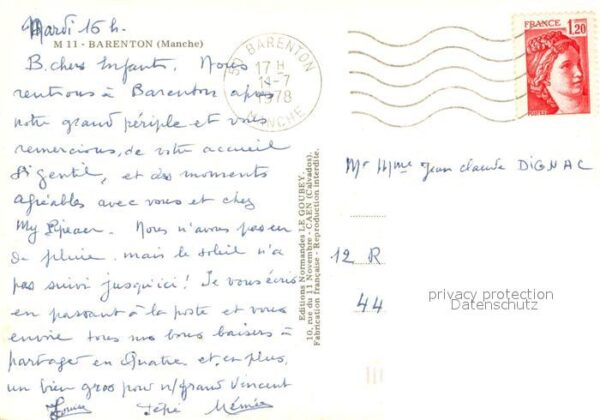 Mardi 15 h.
M 11 - BARENTON (Manche)
B. chers Enfants. Nous
rentrions à Barenton après
notre grand périple et vous
remercions, de votre accueil
si gentil, et des moments
agréables avec vous et chez
My. Nous n'avons pas eu
de pluie mais le soleil n'a
pas suivi jusqu'ici! Je vous écris
en passant à la poste et vous
envoie tous nos bons baisers à
partager en Quatre et, en plus,
un bien gros pour n/grand Vincent
Pépé Mémée
50 BARENTON
17 H
14-7
1978
MANCHE
FRANCE 1,20
POSTES
Editions Normandes LE GOUBEY,
10, rue du 11 Novembre - CAEN (Calvados).
Fabrication française - Reproduction interdite.
Mr Mme Jean Claude DIGNAC
12 R
44
privacy protection
Datenschutz